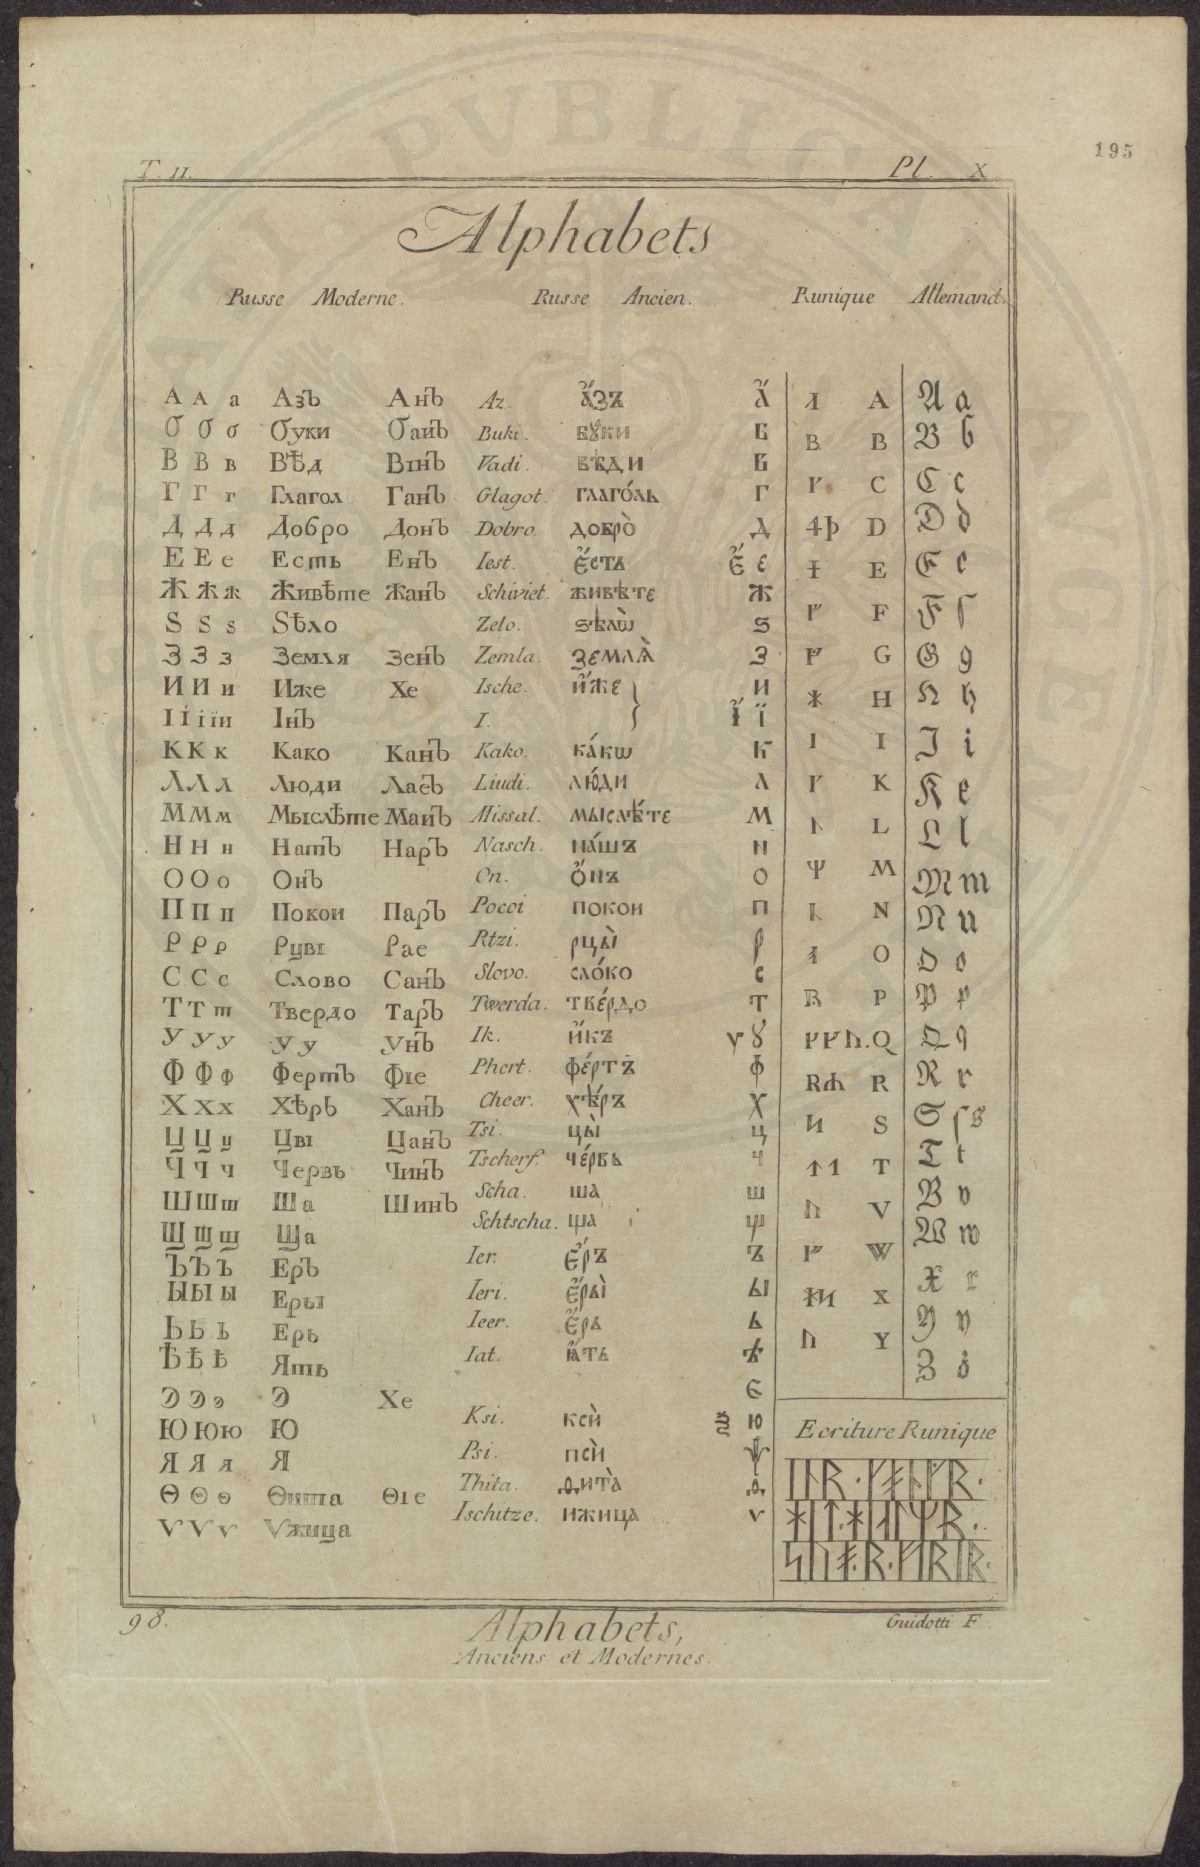 195
T. II. Pl. X
Alphabets
Russe Moderne. Russe Ancien. Runique Allemand.
А А а Азъ Анъ Az. а҆́зъ А҆́ A A a
Б Б б Буки Баиъ Buki. бꙋки Б B B b
В В в Вѣд Вінъ Vadi. вѣди В C C c
Г Г г Глагол Ганъ Glagot. глаго́ль Г D D d
Д Д д Добро Донъ Dobro. добро̀ Д E E e
Е Е е Есть Енъ Iest. є҆́сть Є҆́ є F F f
Ж Ж ж Живѣте Жанъ Schiviet. живѣте Ж G G g
Ѕ Ѕ ѕ Ѕѣло Zelo. ѕѣлѡ̀ Ѕ H H h
З З з Земля Зенъ Zemla. землѧ̀ З I I i
И И и Иже Хе Ische. и҆́же И K K k
І І і ії и Інъ I. І҆́ ї L L l
К К к Како Канъ Kako. ка́кѡ К M M m
Л Л л Люди Лаеъ Liudi. лю́ди Л N N n
М М м Мыслѣте Маиъ Missal. мыслѣ́те М O O o
Н Н н Натъ Наръ Nasch. на́шъ N P P p
О О о Онъ On. Ѻ҆́нъ О Q Q q
П П п Покои Паръ Pocoi покои П R R r
Р Р р Руві Рае Rtzi. рцы̀ Р S S ſ s
С С с Слово Санъ Slovo. сло́ко С T T t
Т Т т Твердо Таръ Twerda. тве́рдо Т V V v
У У у У у Унъ Ik. и҆́къ Ѵ Ꙋ W W w
Ф Ф ф Фертъ Фіе Phert. фе́ртъ Ф X X x
Х Х х Хѣрь Ханъ Cheer. хѣ́ръ Х Y Y y
Ц Ц ц Цві Цанъ Tsi. цы̀ Ц Z z
Ч Ч ч Червь Чинъ Tscherf. че́рвь Ч
Ш Ш ш Ша Шинъ Scha. ша Ш
Щ Щ щ Ща Schtscha. ща Щ
Ъ Ъ ъ Еръ Ier. є҆́ръ Ъ
Ы Ы ы Еры Ieri. є҆́ры̀ Ы
Ь Ь ь Ерь Ieer. є҆́рь Ь
Ѣ Ѣ ѣ Ять Iat. ꙗ҆́ть Ѣ
Э Э э Э Хе Є
Ю Ю ю Ю Ksi. ксѝ Ѯ Ю
Я Я я Я Psi. псѝ Ѱ
Ѳ Ѳ ѳ Ѳита Ѳіе Thita. ѳита̀ Ѳ
Ѵ Ѵ ѵ Ѵжица Ischitze. ижица Ѵ
Ecriture Runique
98.
Guidotti F.
Alphabets,
Anciens et Modernes.